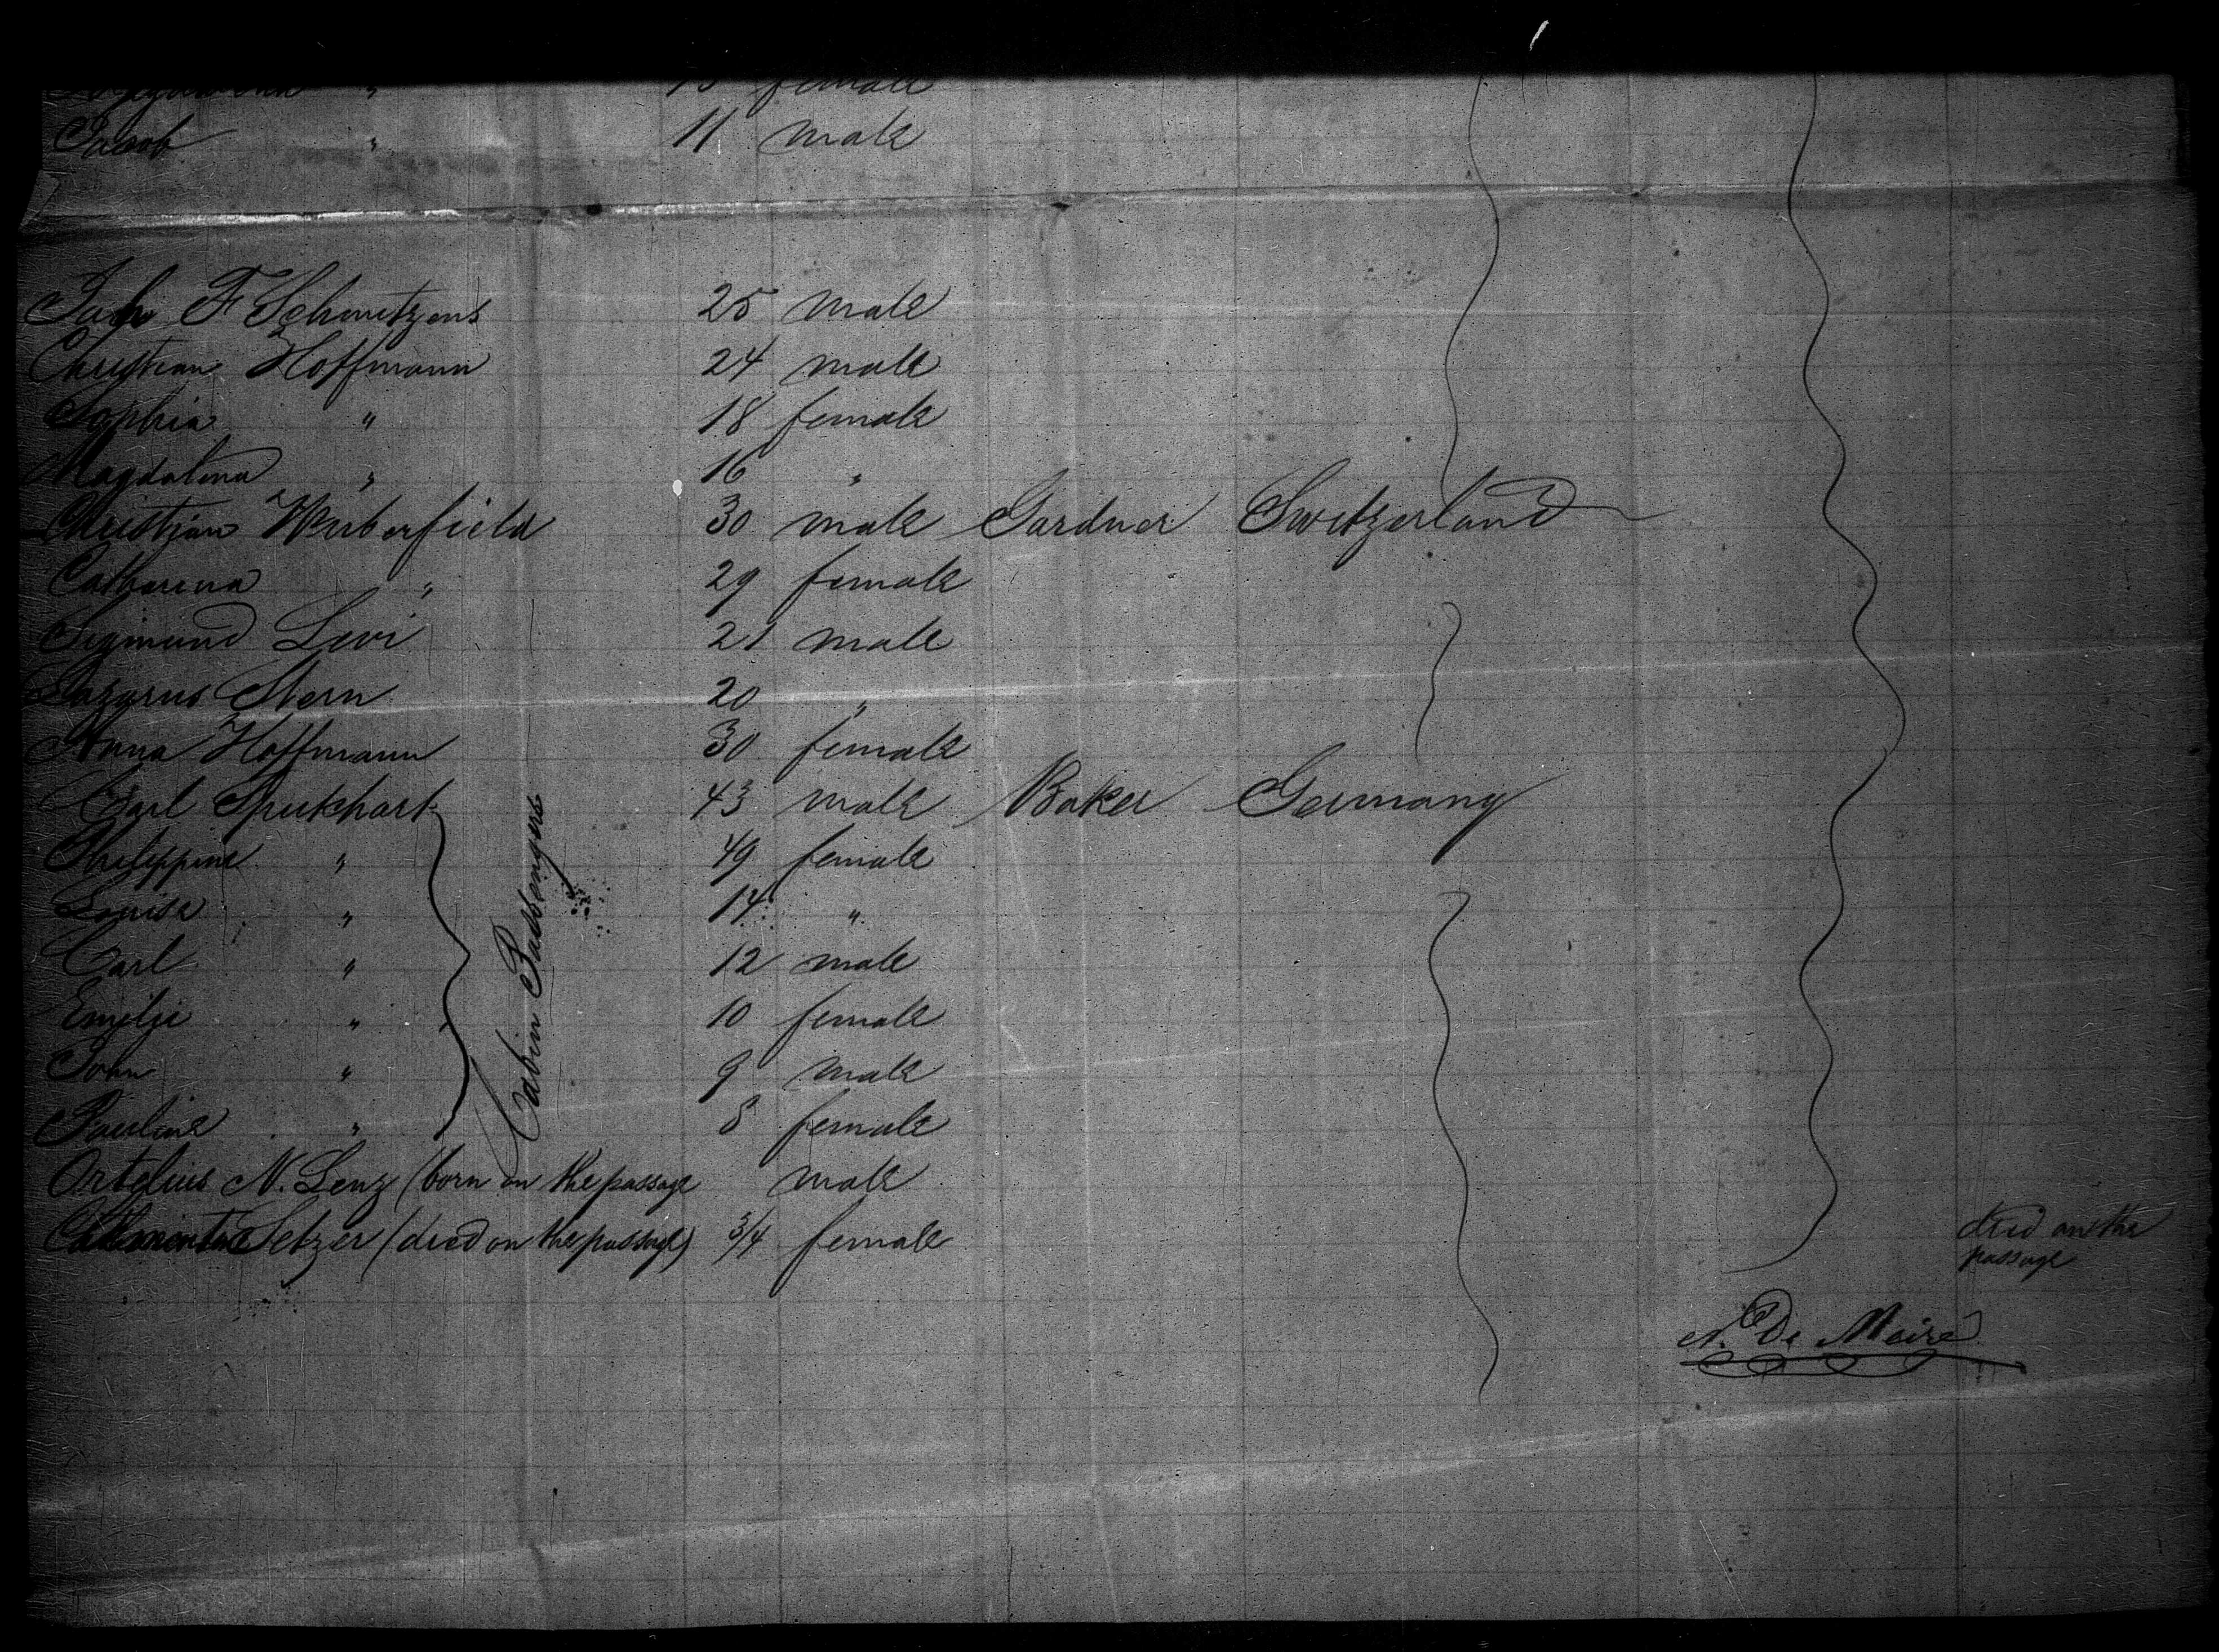 female
Jacob " 11 male
F Schmitzens 25 male
Christian Hoffmann 24 male
Sophia " 18 female
Magdalena " 16 "
Christian 30 male Gardner Switzerland
Catharina " 29 female
Sigmund Levi 21 male
Lazarus Stern 20 "
Anna Hoffmann 30 female
Carl 43 male Baker Germany
Philippine " 49 female
Louise " 14 "
Carl " 12 male
Emilje " 10 female
John " 9 male
Pauline " 8 female
Cabin Passengers
Ortelius N. Lenz (born on the passage male
Setzer (died on the passage) 3/4 female
died on the
passage
N. De Maire